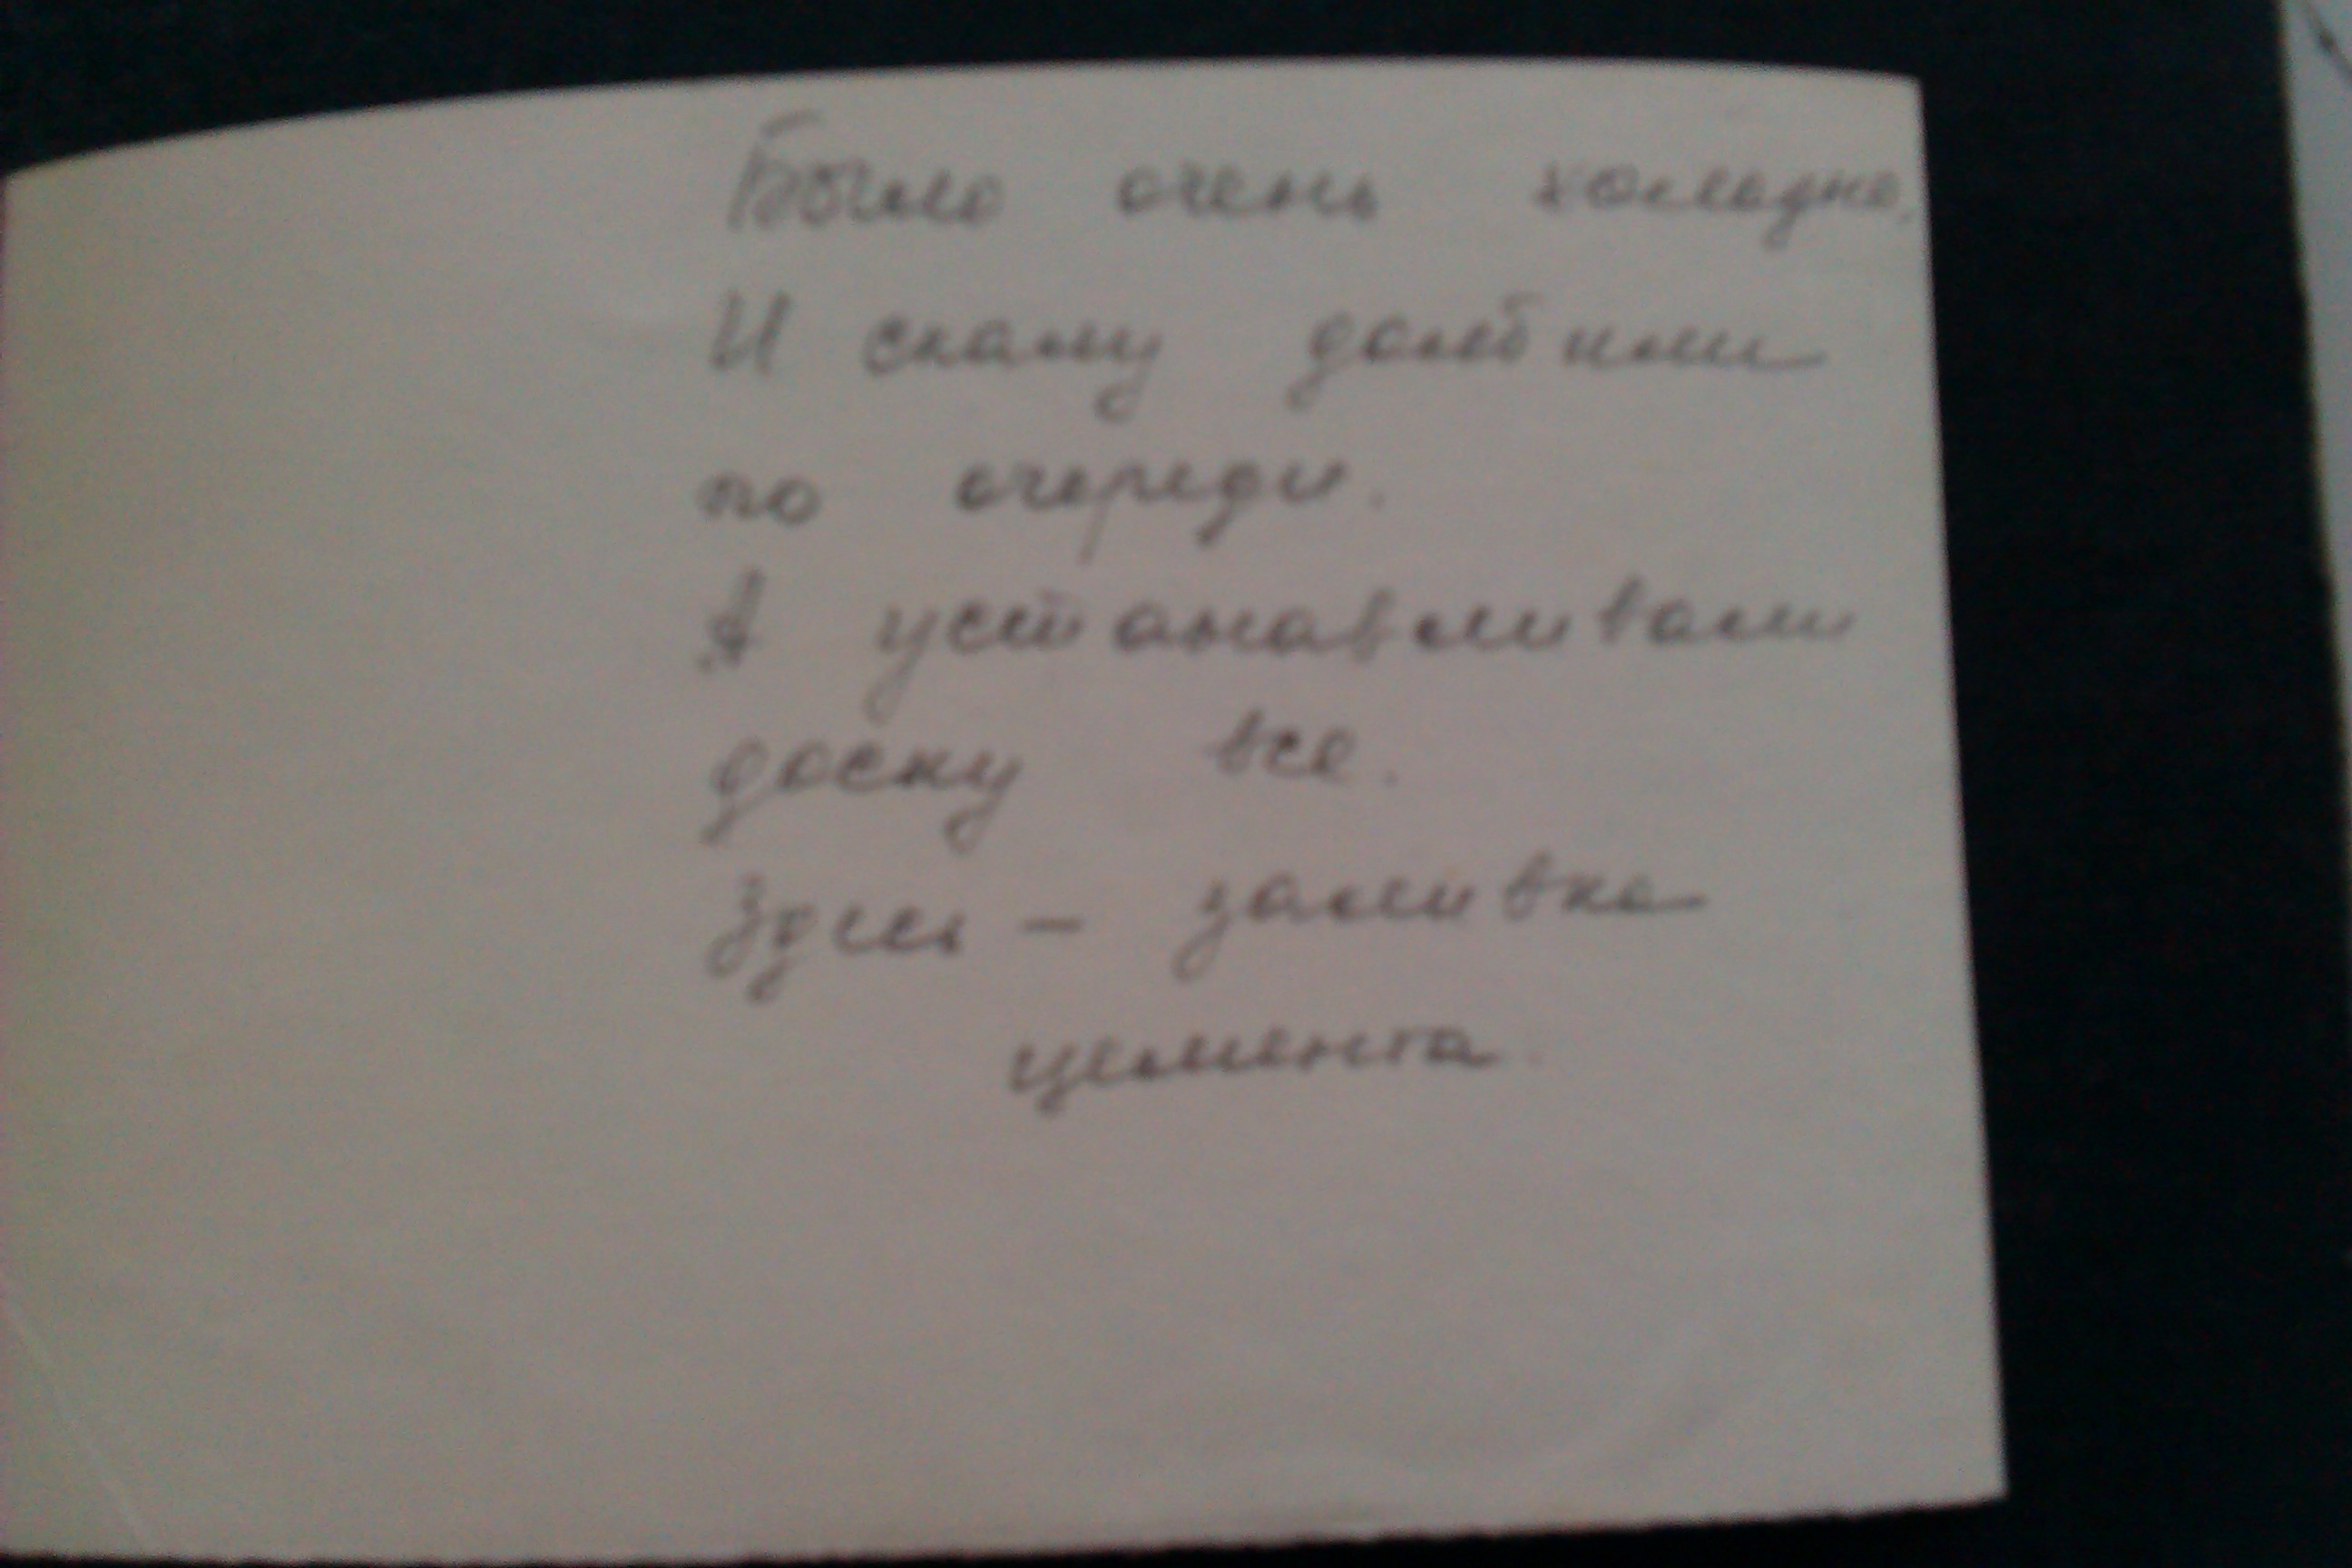 Было очень холодно.
И скалу долбили
по очереди.
А устанавливали
доску все.
Здесь – заливка
цемента.